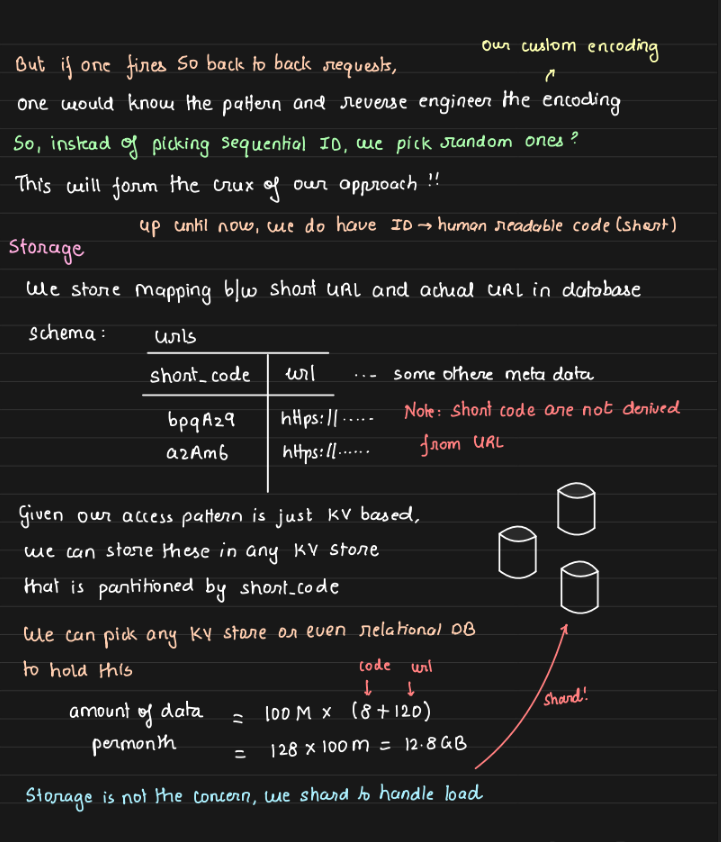 Our custom encoding
But if one fires 50 back to back requests,
one would know the pattern and reverse engineer the encoding
So, instead of picking sequential ID, we pick random ones?
This will form the crux of our approach !!
up until now, we do have ID → human readable code (short)
Storage
We store mapping b/w short URL and actual URL in database
Schema: urls
short_code url ... some othere meta data
bpqA29 https://.....
Note: short code are not derived
a2Am6 https://......
from URL
Given our access pattern is just KV based,
we can store these in any KV store
that is partitioned by short_code
We can pick any KV store or even relational DB
to hold this
code url
amount of data = 100M × (8+120)
Shard!
permonth = 128 × 100m = 12.8GB
Storage is not the concern, we shard to handle load